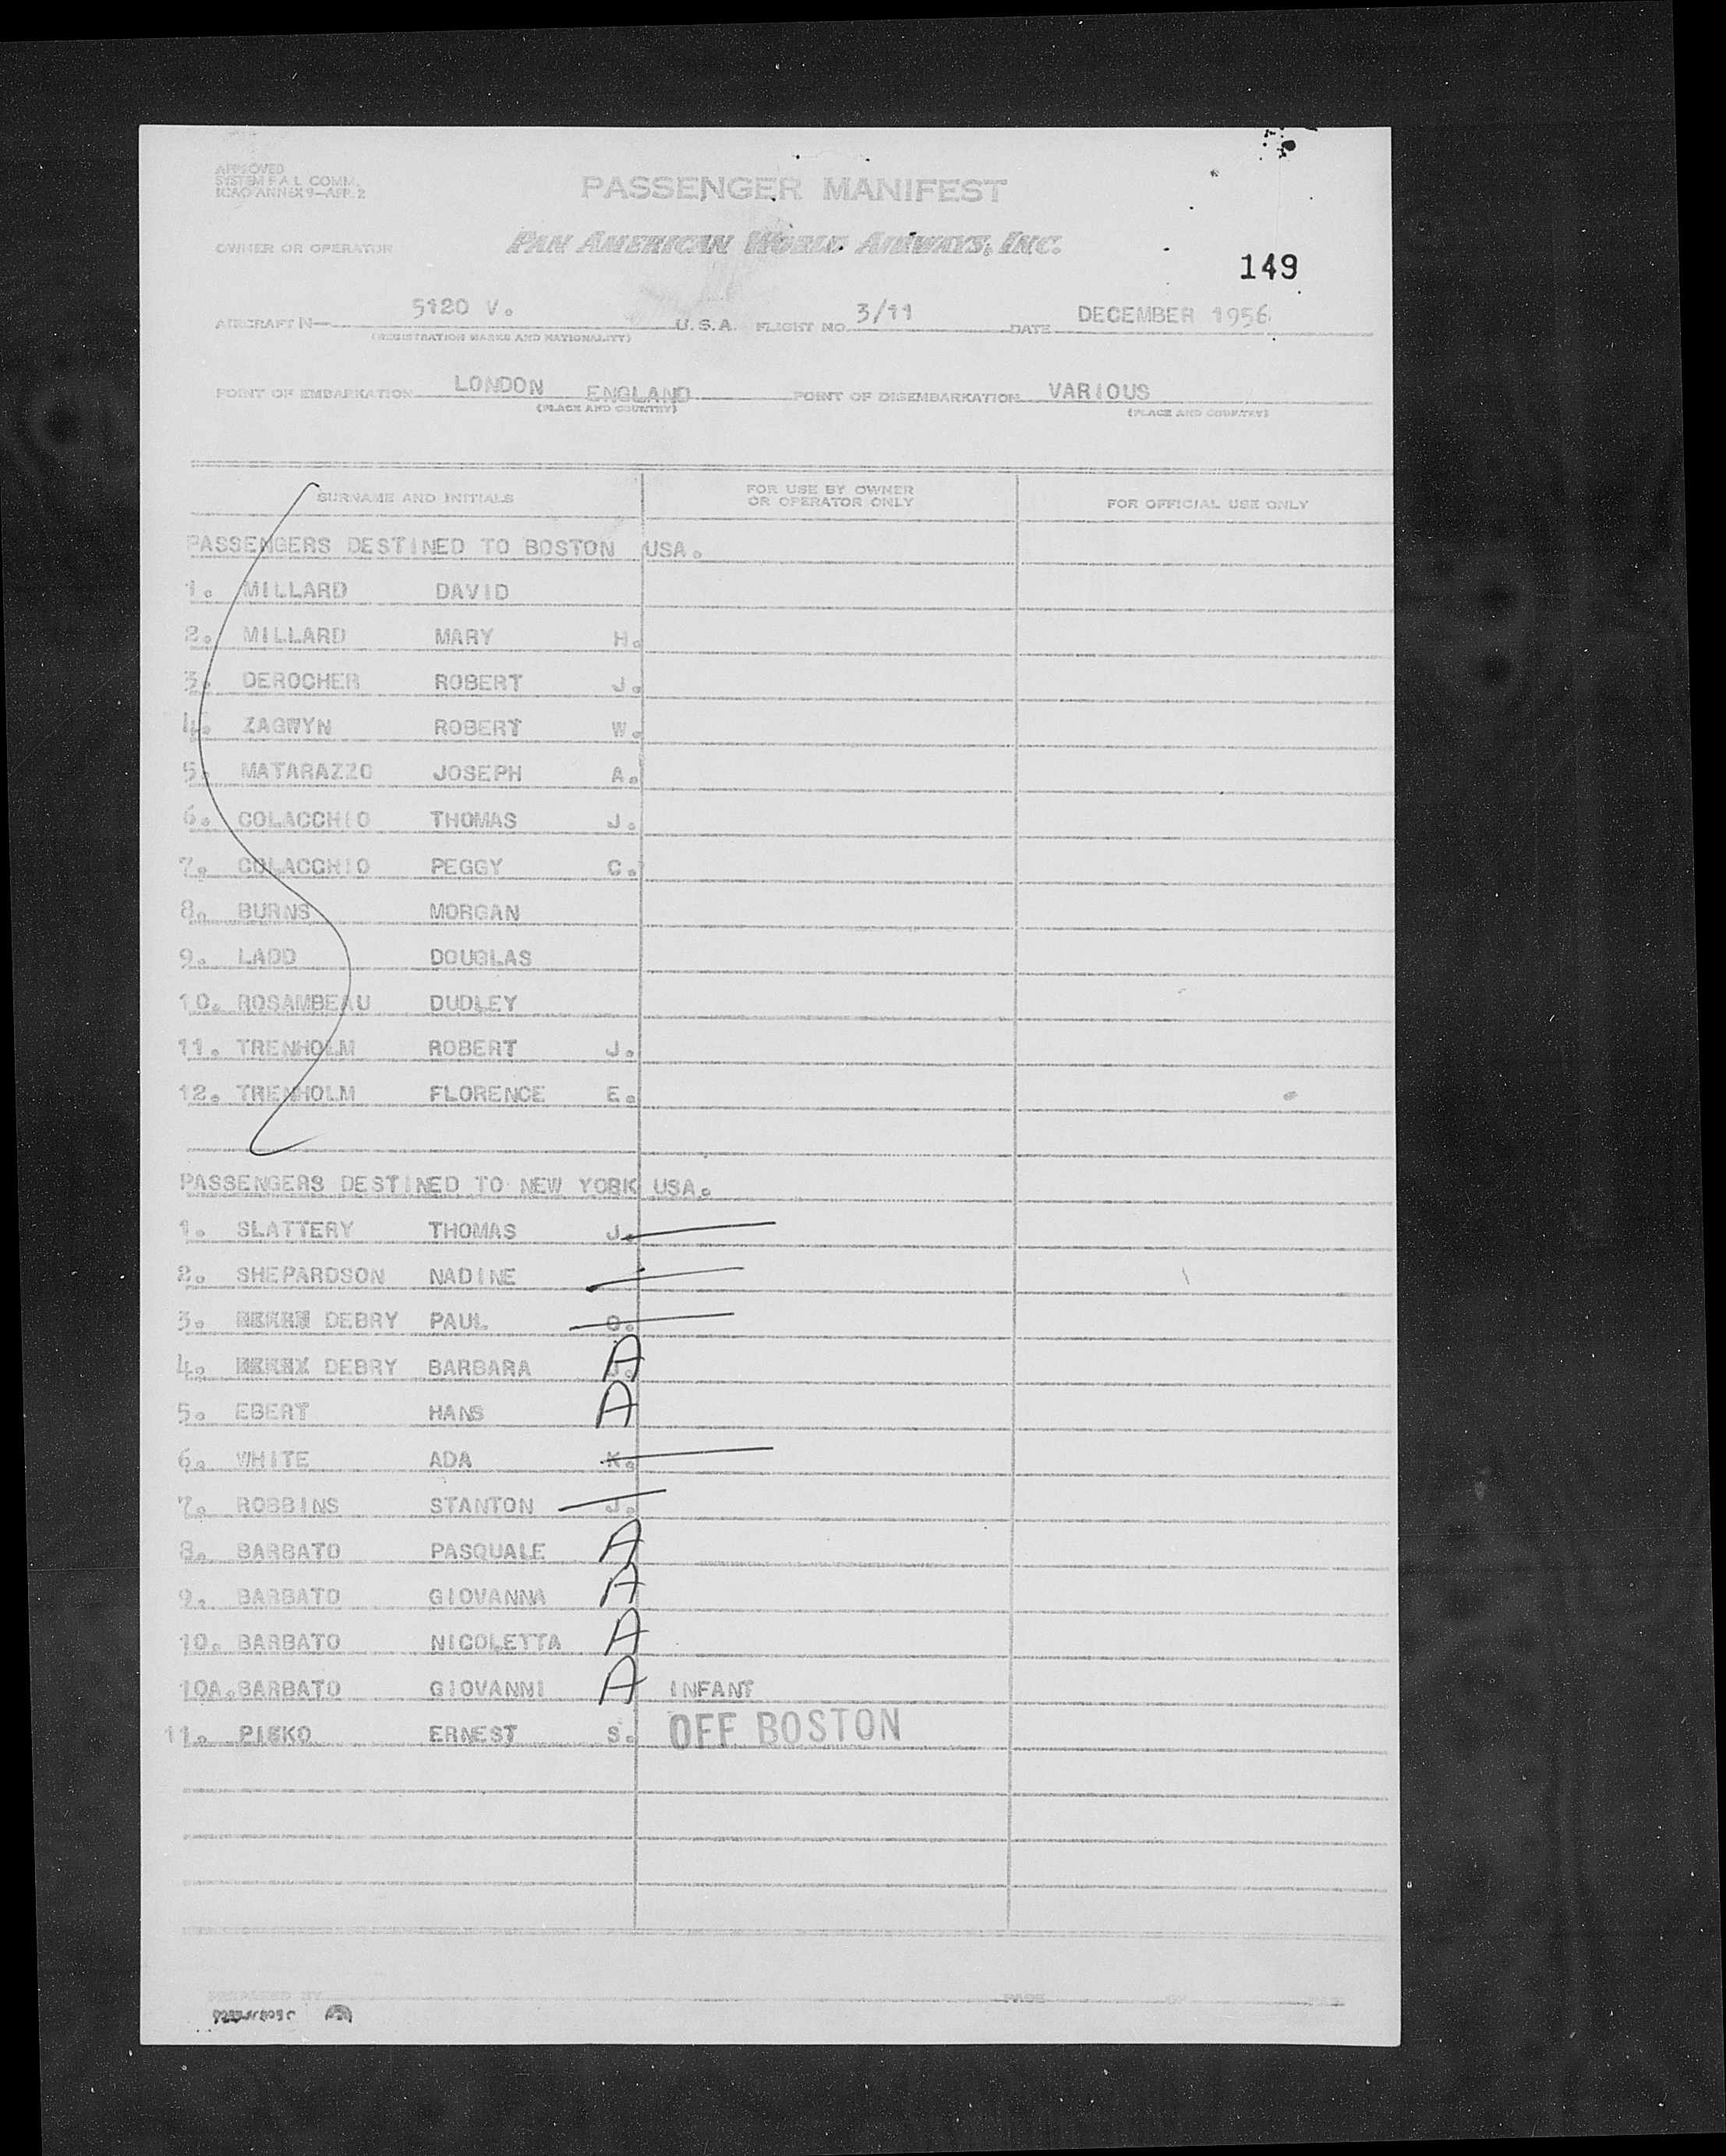 APPROVED
SYSTEM F.A.L. COMM.
ICAO ANNEX 9—APP. 2
PASSENGER MANIFEST
OWNER OR OPERATOR PAN AMERICAN WORLD AIRWAYS, INC.
149
AIRCRAFT N— 5120 V. U.S.A. FLIGHT NO. 3/11 DATE DECEMBER 1956
(REGISTRATION MARKS AND NATIONALITY)
POINT OF EMBARKATION LONDON ENGLAND POINT OF DISEMBARKATION VARIOUS
(PLACE AND COUNTRY) (PLACE AND COUNTRY)
SURNAME AND INITIALS FOR USE BY OWNER OR OPERATOR ONLY FOR OFFICIAL USE ONLY
PASSENGERS DESTINED TO BOSTON USA.
1. MILLARD DAVID
2. MILLARD MARY H.
3. DEROCHER ROBERT J.
4. ZAGWYN ROBERT W.
5. MATARAZZO JOSEPH A.
6. COLACCHIO THOMAS J.
7. COLACCHIO PEGGY C.
8. BURNS MORGAN
9. LADD DOUGLAS
10. ROSAMBEAU DUDLEY
11. TRENHOLM ROBERT J.
12. TRENHOLM FLORENCE E.
PASSENGERS DESTINED TO NEW YORK USA.
1. SLATTERY THOMAS J.
2. SHEPARDSON NADINE
3. DEBRY PAUL O.
4. DEBRY BARBARA A
5. EBERT HANS A
6. WHITE ADA K.
7. ROBBINS STANTON J.
8. BARBATO PASQUALE A
9. BARBATO GIOVANNA A
10. BARBATO NICOLETTA A
10A. BARBATO GIOVANNI A INFANT
11. PISKO ERNEST S. OFF BOSTON
PREPARED BY PAGE OF